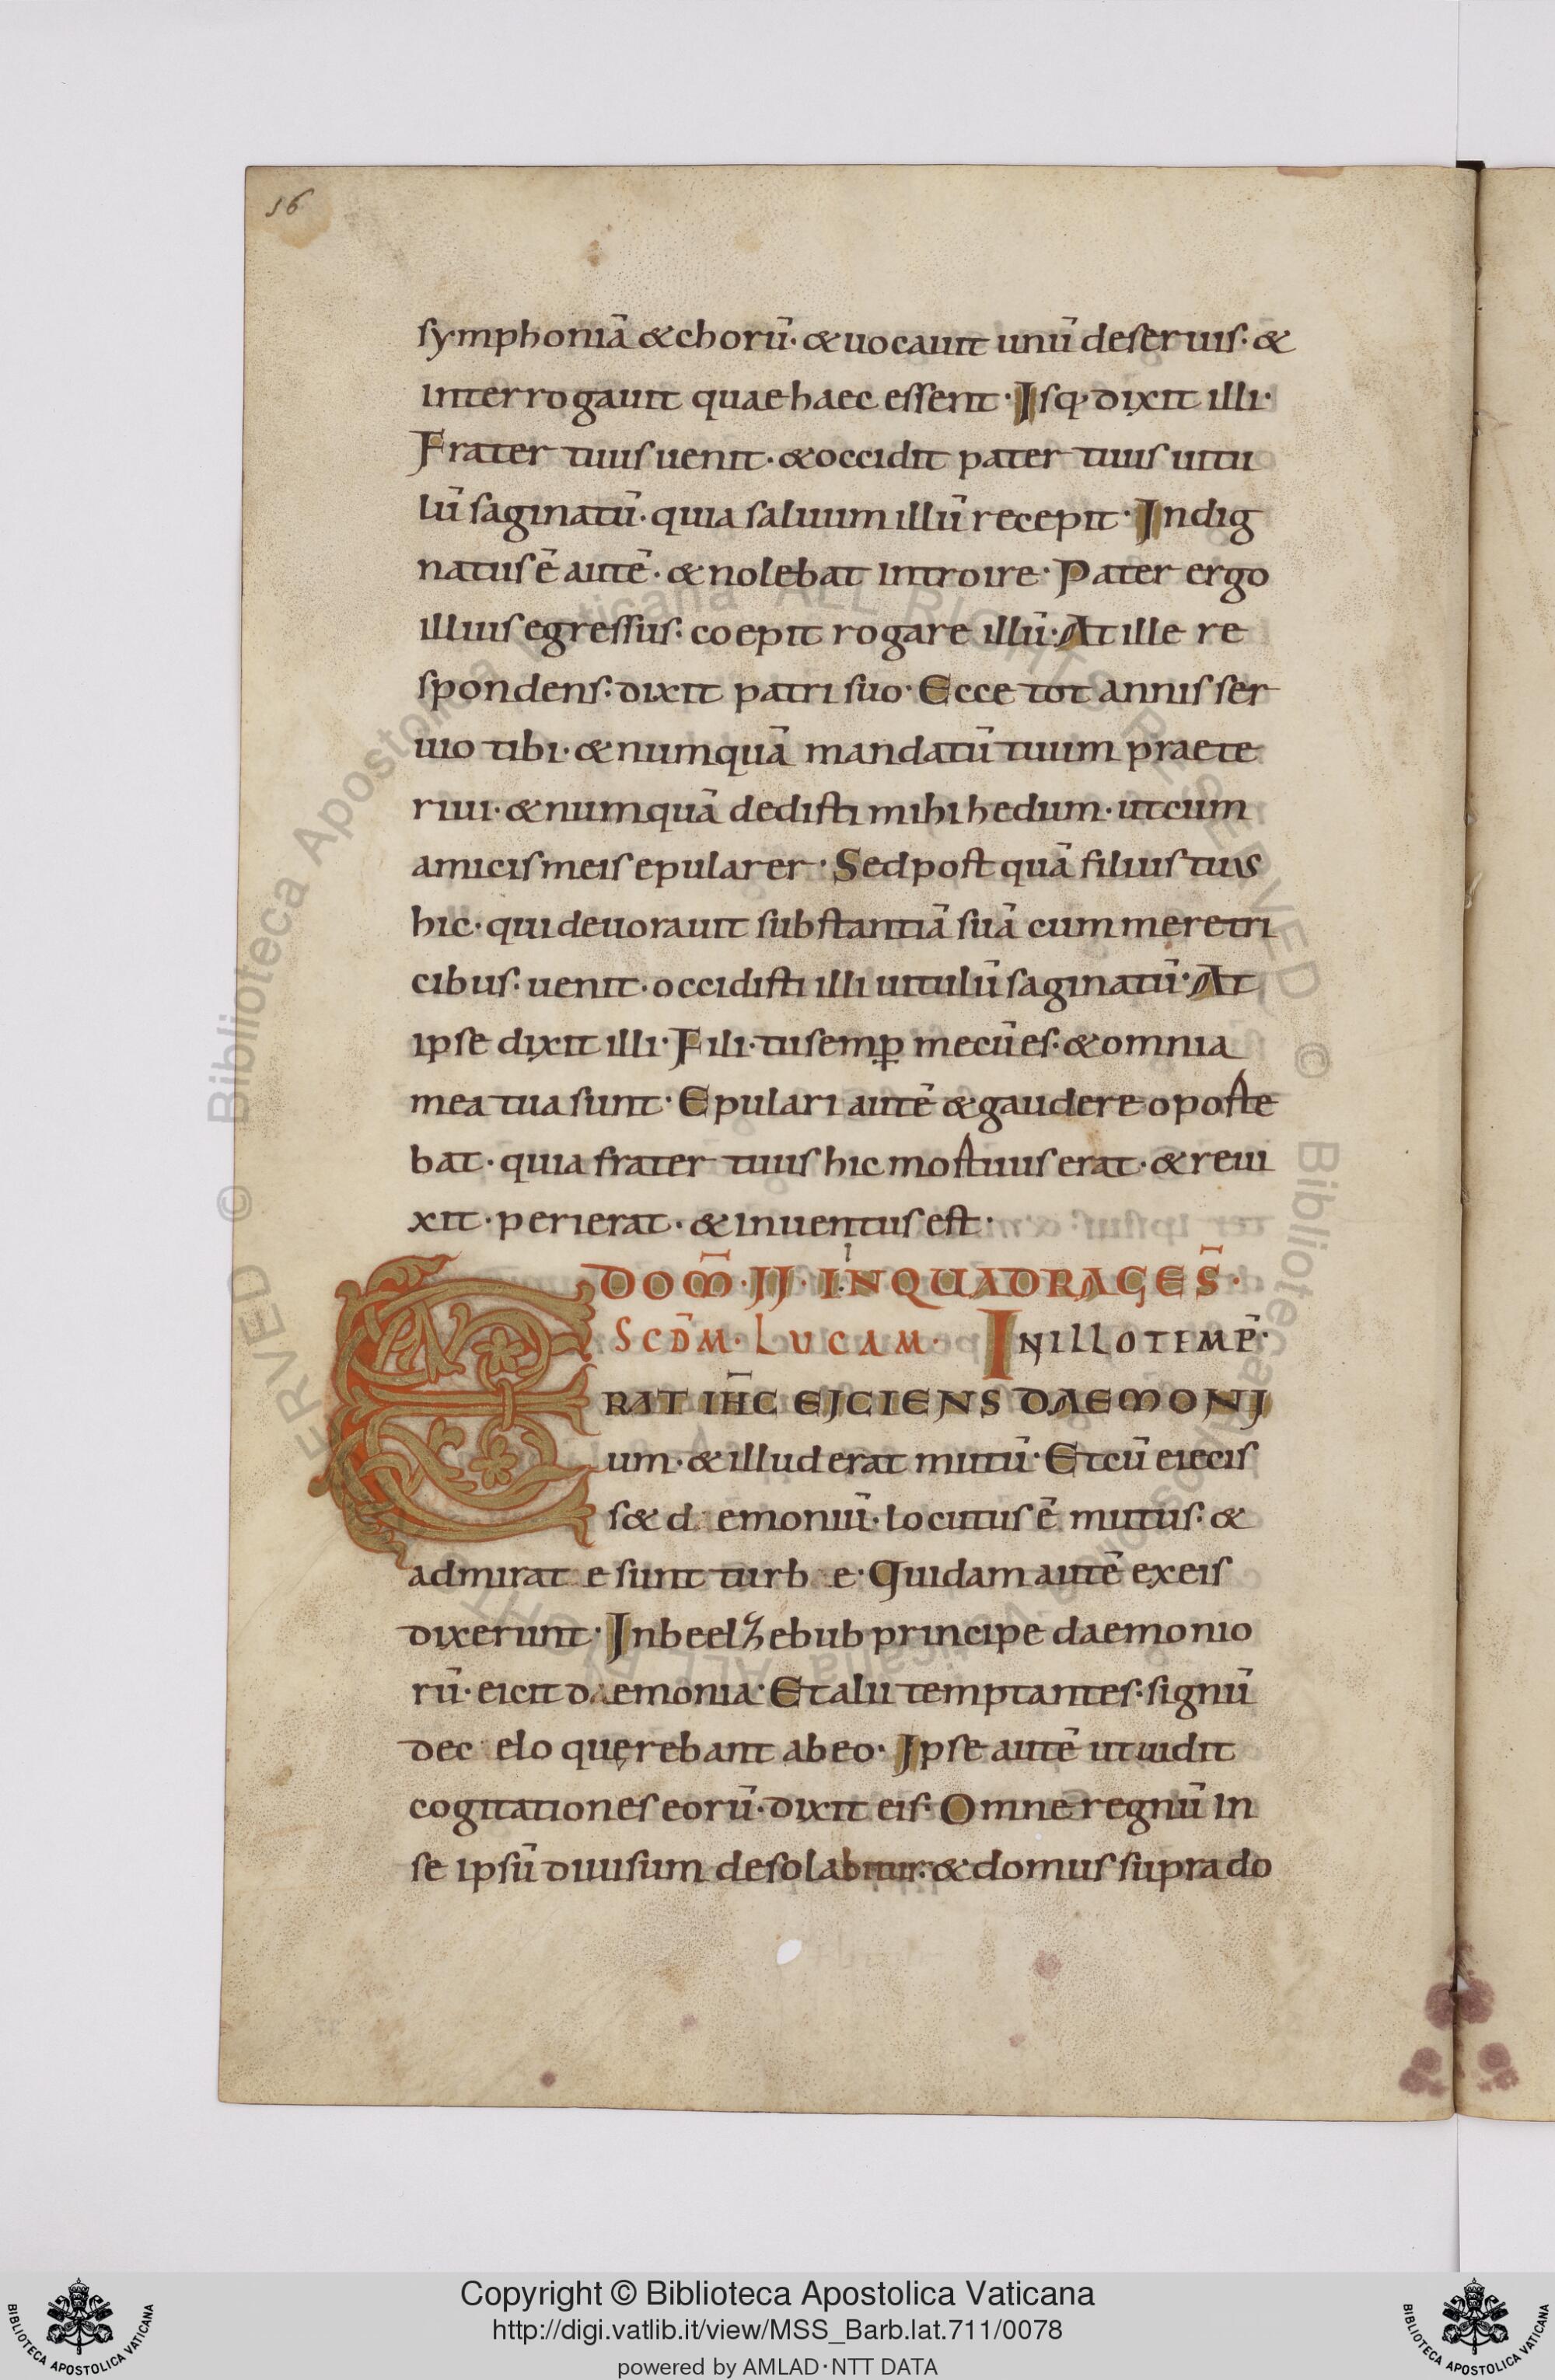 56
symphoniā &chorū· &uocauit unū deseruis· &
interrogauit quae haec essent· Isq· dixit illi·
Frater tuus uenit· &occidit pater tuus uitu
lū saginatū· quia saluum illū recepit· Indig
natus ē autē· & nolebat introire· Pater ergo
illius egressus· coepit rogare illū· At ille re
spondens· dixit patri suo· Ecce tot annis ser
uio tibi· & numquā mandatū tuum praete
riui· & numquā dedisti mihi hedum· ut cum
amicis meis epularer· Sed post quā filius tuus
hic· qui deuorauit substantiā suā cum meretri
cibus· uenit· occidisti illi uitulū saginatū· At
ipse dixit illi· Fili· tu semꝑ mecū es· & omnia
mea tua sunt· Epulari autē & gaudere oporte
bat· quia frater tuus hic mortuus erat· & reui
xit· perierat· & inuentus est·
DOM̄· II· IN QUADRAGES̄·
SCDM̄· LUCAM· IN ILLO TEMP̄·
ERAT IH̄C EJCIENS DAEMONJ
um· & illud erat mutū· Et cū eiecis
s& d emoniū· locutus ē mutus· &
admirat e sunt turb e· Quidam autē ex eis
dixerunt· In beelzebub principe daemonio
rū· eicit daemonia· Et alii temptantes· signū
de c elo quęrebant ab eo· Ipse autē ut uidit
cogitationes eorū· dixit eis· Omne regnū in
se ipsū diuisum desolabitur· & domus supra do
© Biblioteca Apostolica Vaticana ALL RIGHTS RESERVED © Biblioteca Apostolica Vaticana ALL RIGHTS RESERVED
Copyright © Biblioteca Apostolica Vaticana
http://digi.vatlib.it/view/MSS_Barb.lat.711/0078
powered by AMLAD·NTT DATA
BIBLIOTECA APOSTOLICA VATICANA
BIBLIOTECA APOSTOLICA VATICANA